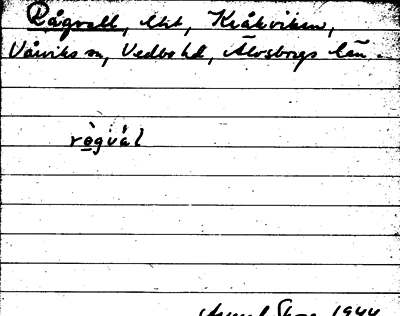 Rågvall, lht, Kråkviken,
Vårviks sn, Vedbo hd, Älvsborgs län.
rògvàl
1944